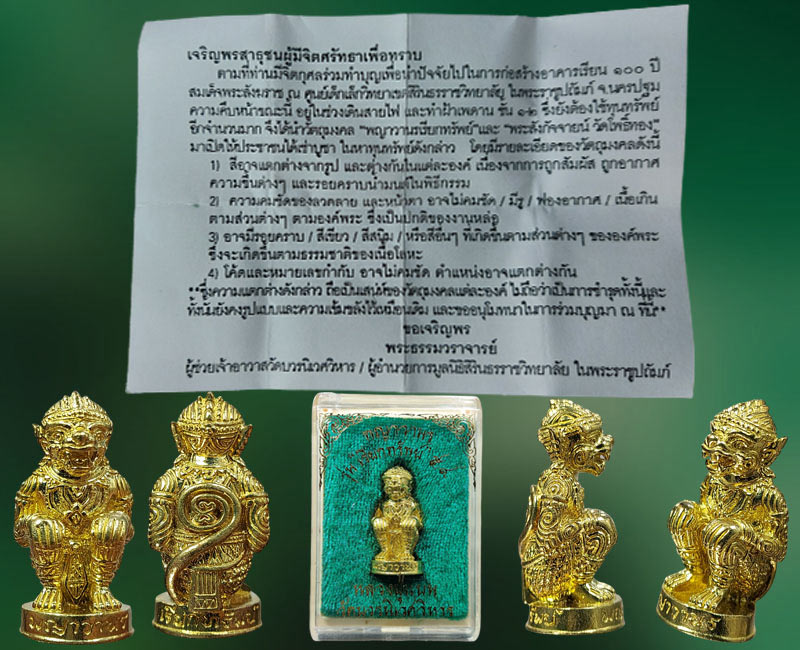 เจริญพรสาธุชนผู้มีจิตศรัทธาเพื่อทราบ
ตามที่ท่านมีจิตกุศลร่วมทำบุญเพื่อนำปัจจัยไปในการก่อสร้างอาคารเรียน ๑๐๐ ปี
สมเด็จพระสังฆราช ณ ศูนย์เด็กเล็กวิทยาเขตสิรินธรราชวิทยาลัย ในพระราชูปถัมภ์ จ.นครปฐม
ความคืบหน้าขณะนี้ อยู่ในช่วงเดินสายไฟ และทำฝ้าเพดาน ชั้น ๑-๒ ซึ่งยังต้องใช้ทุนทรัพย์
อีกจำนวนมาก จึงได้นำวัตถุมงคล "พญาวานรเรียกทรัพย์" และ "พระสังกัจจายน์ วัดโพธิ์ทอง"
มาเปิดให้ประชาชนได้เช่าบูชา ในหาทุนทรัพย์ดังกล่าว โดยมีรายละเอียดของวัตถุมงคลดังนี้
1) สีอาจแตกต่างจากรูป และต่างกันในแต่ละองค์ เนื่องจากการถูกสัมผัส ถูกอากาศ
ความชื้นต่างๆ และรอยคราบน้ำมนต์ในพิธีกรรม
2) ความคมชัดของลวดลาย และหน้าตา อาจไม่คมชัด / มีรู / ฟองอากาศ / เนื้อเกิน
ตามส่วนต่างๆ ตามองค์พระ ซึ่งเป็นปกติของงานหล่อ
3) อาจมีรอยคราบ / สีเขียว / สีสนิม / หรือสีอื่นๆ ที่เกิดขึ้นตามส่วนต่างๆ ขององค์พระ
ซึ่งจะเกิดขึ้นตามธรรมชาติของเนื้อโลหะ
4) โค้ดและหมายเลขกำกับ อาจไม่คมชัด ตำแหน่งอาจแตกต่างกัน
**ซึ่งความแตกต่างดังกล่าว ถือเป็นเสน่ห์ของวัตถุมงคลแต่ละองค์ ไม่ถือว่าเป็นการชำรุดทั้งนี้และ
ทั้งนั้นยังคงรูปแบบและความเข้มขลังไว้เหมือนเดิม และขออนุโมทนาในการร่วมบุญมา ณ ที่นี้**
ขอเจริญพร
พระธรรมวราจารย์
ผู้ช่วยเจ้าอาวาสวัดบวรนิเวศวิหาร / ผู้อำนวยการมูลนิธิสิรินธรราชวิทยาลัย ในพระราชูปถัมภ์
พญาวานร
เรียกทรัพย์
พญาวานร
วัดบวรนิเวศวิหาร
พญาวานร